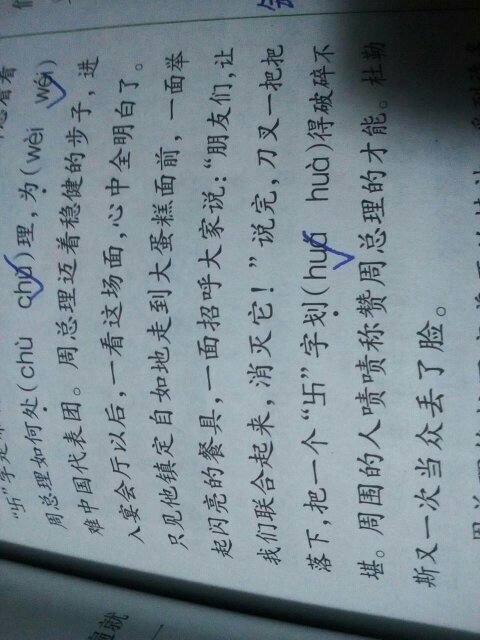 “卐”字是
周总理如何处(chù chǔ)理，为(wèi wéi)
难中国代表团。周总理迈着稳健的步子，进
入宴会厅以后，一看这场面，心中全明白了。
只见他镇定自如地走到大蛋糕面前，一面举
起闪亮的餐具，一面招呼大家说：“朋友们，让
我们联合起来，消灭它！”说完，刀叉一把把
落下，把一个“卐”字划(huá huà)得破碎不
堪。周围的人啧啧称赞周总理的才能。杜勒
斯又一次当众丢了脸。